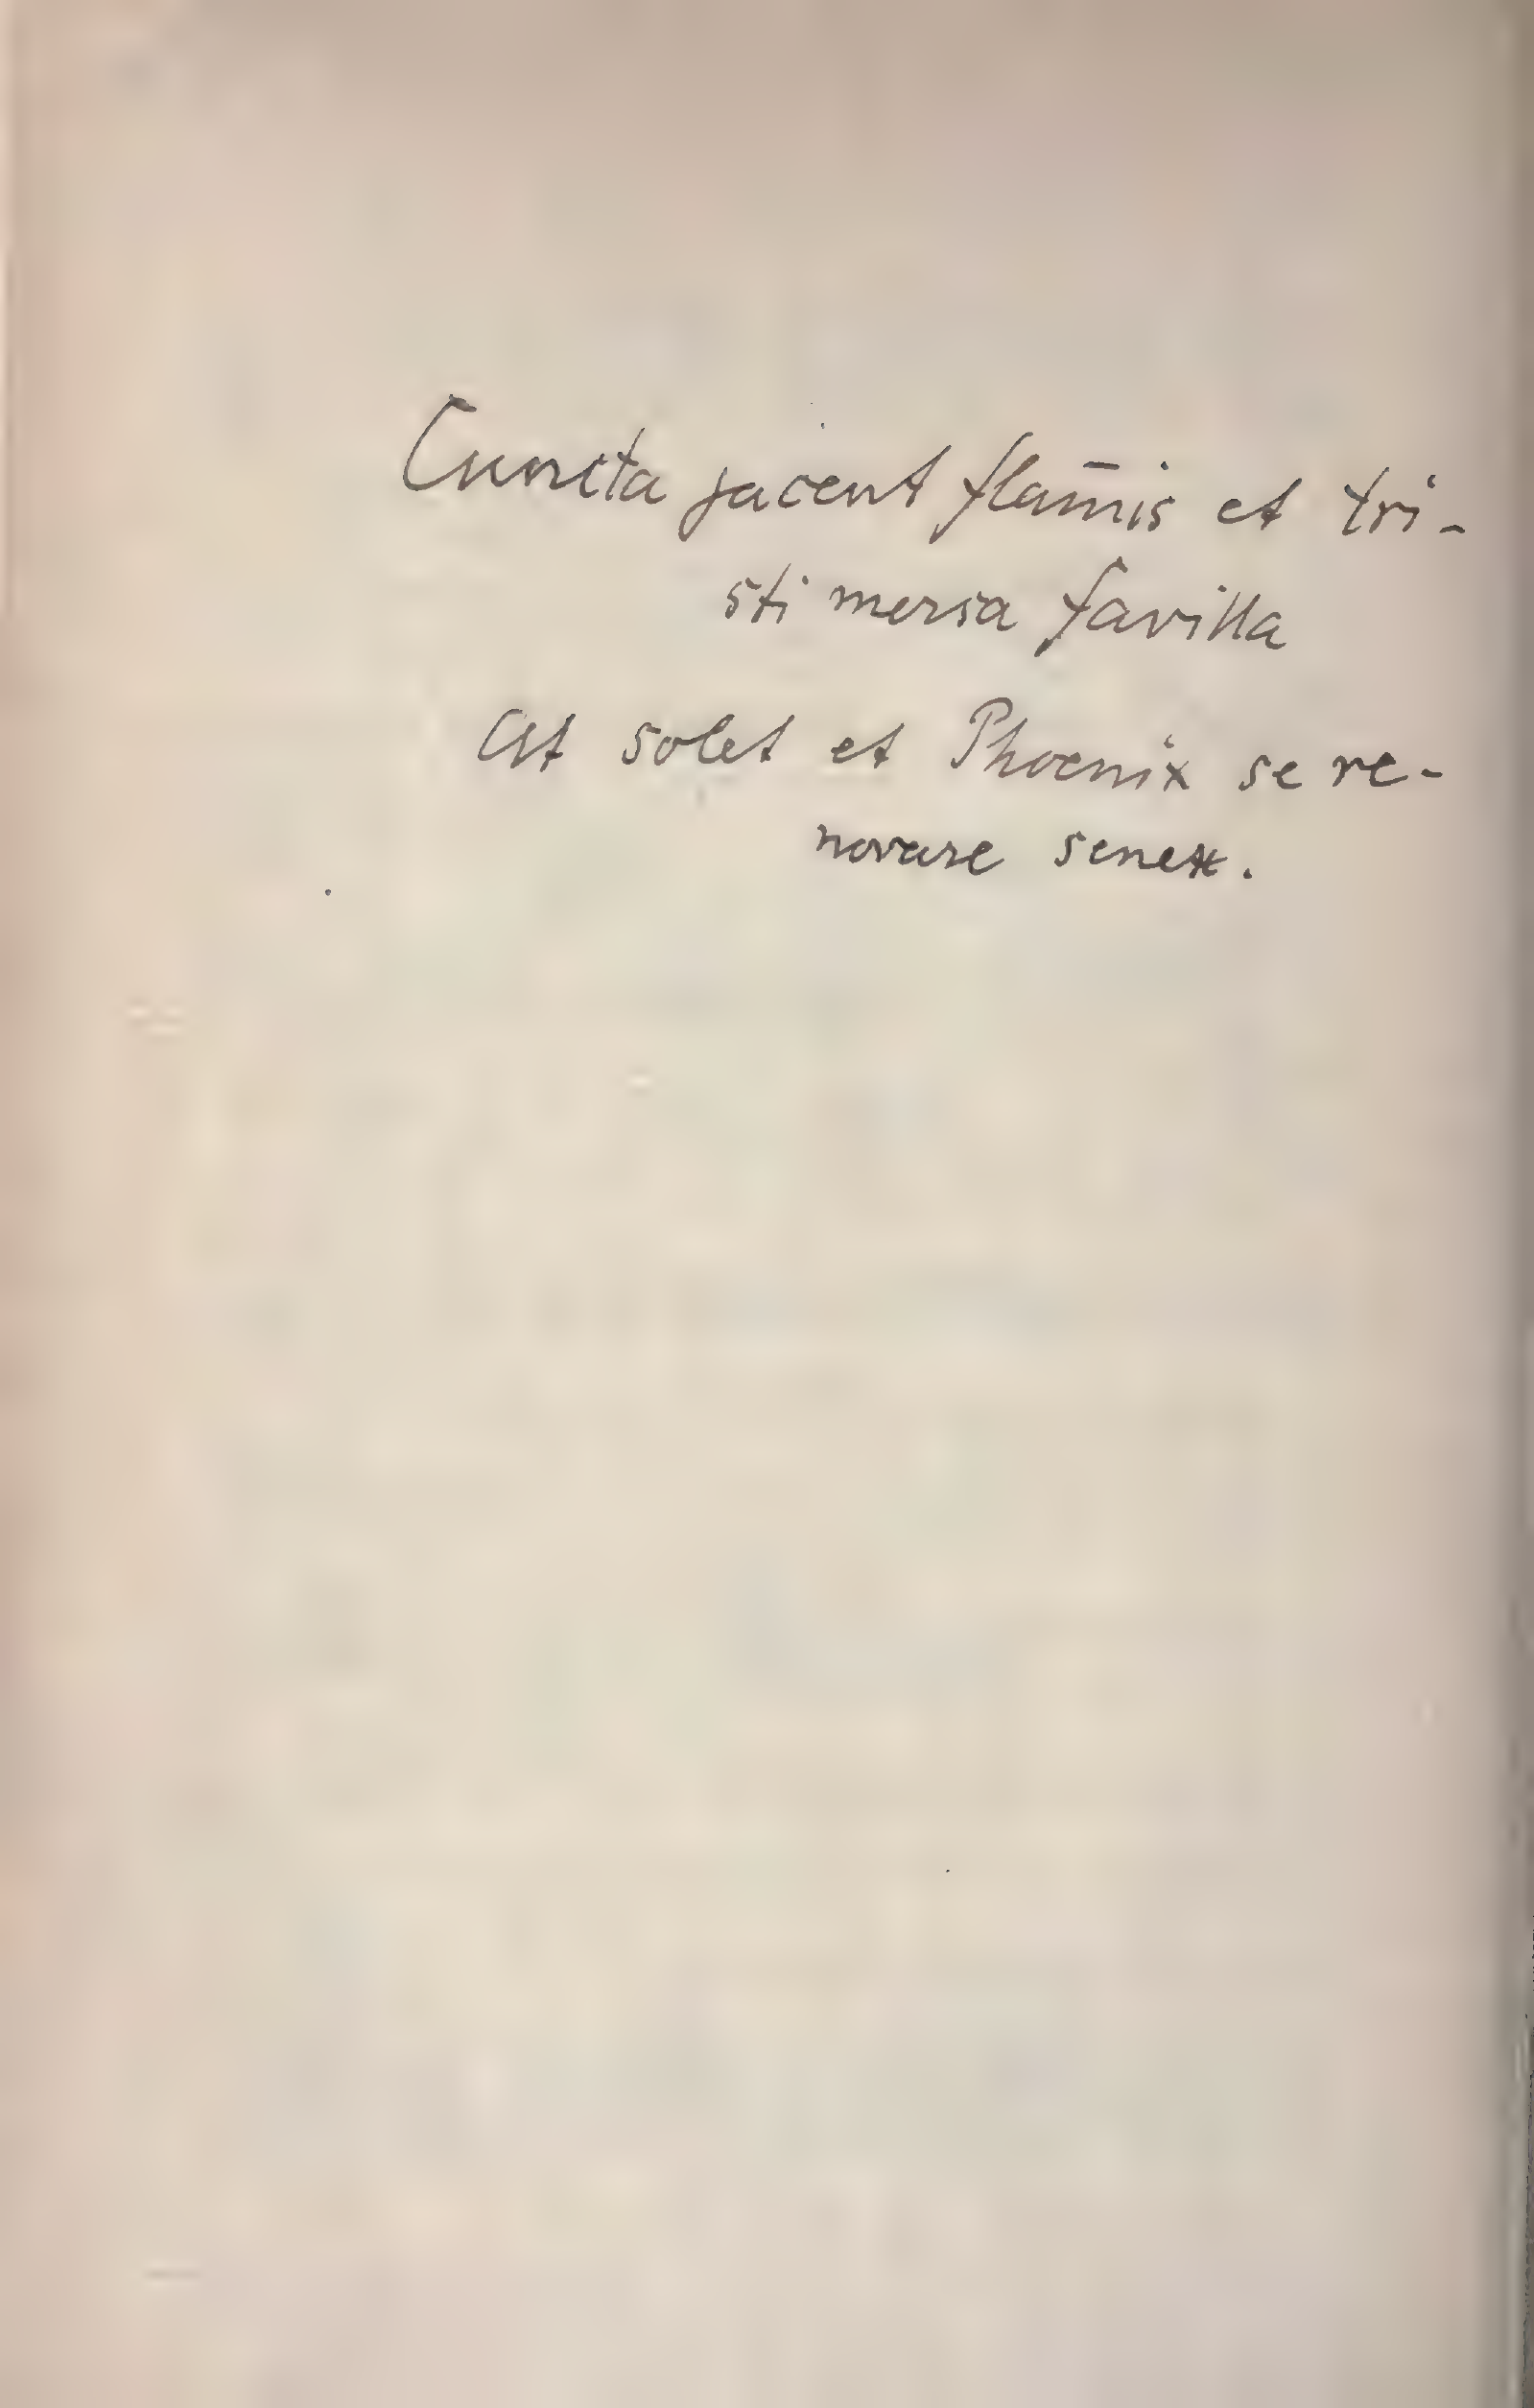 Cuncta jacent flam̄is et tri-
sti mersa favilla
At solet et Phoenix se re-
novare senex.